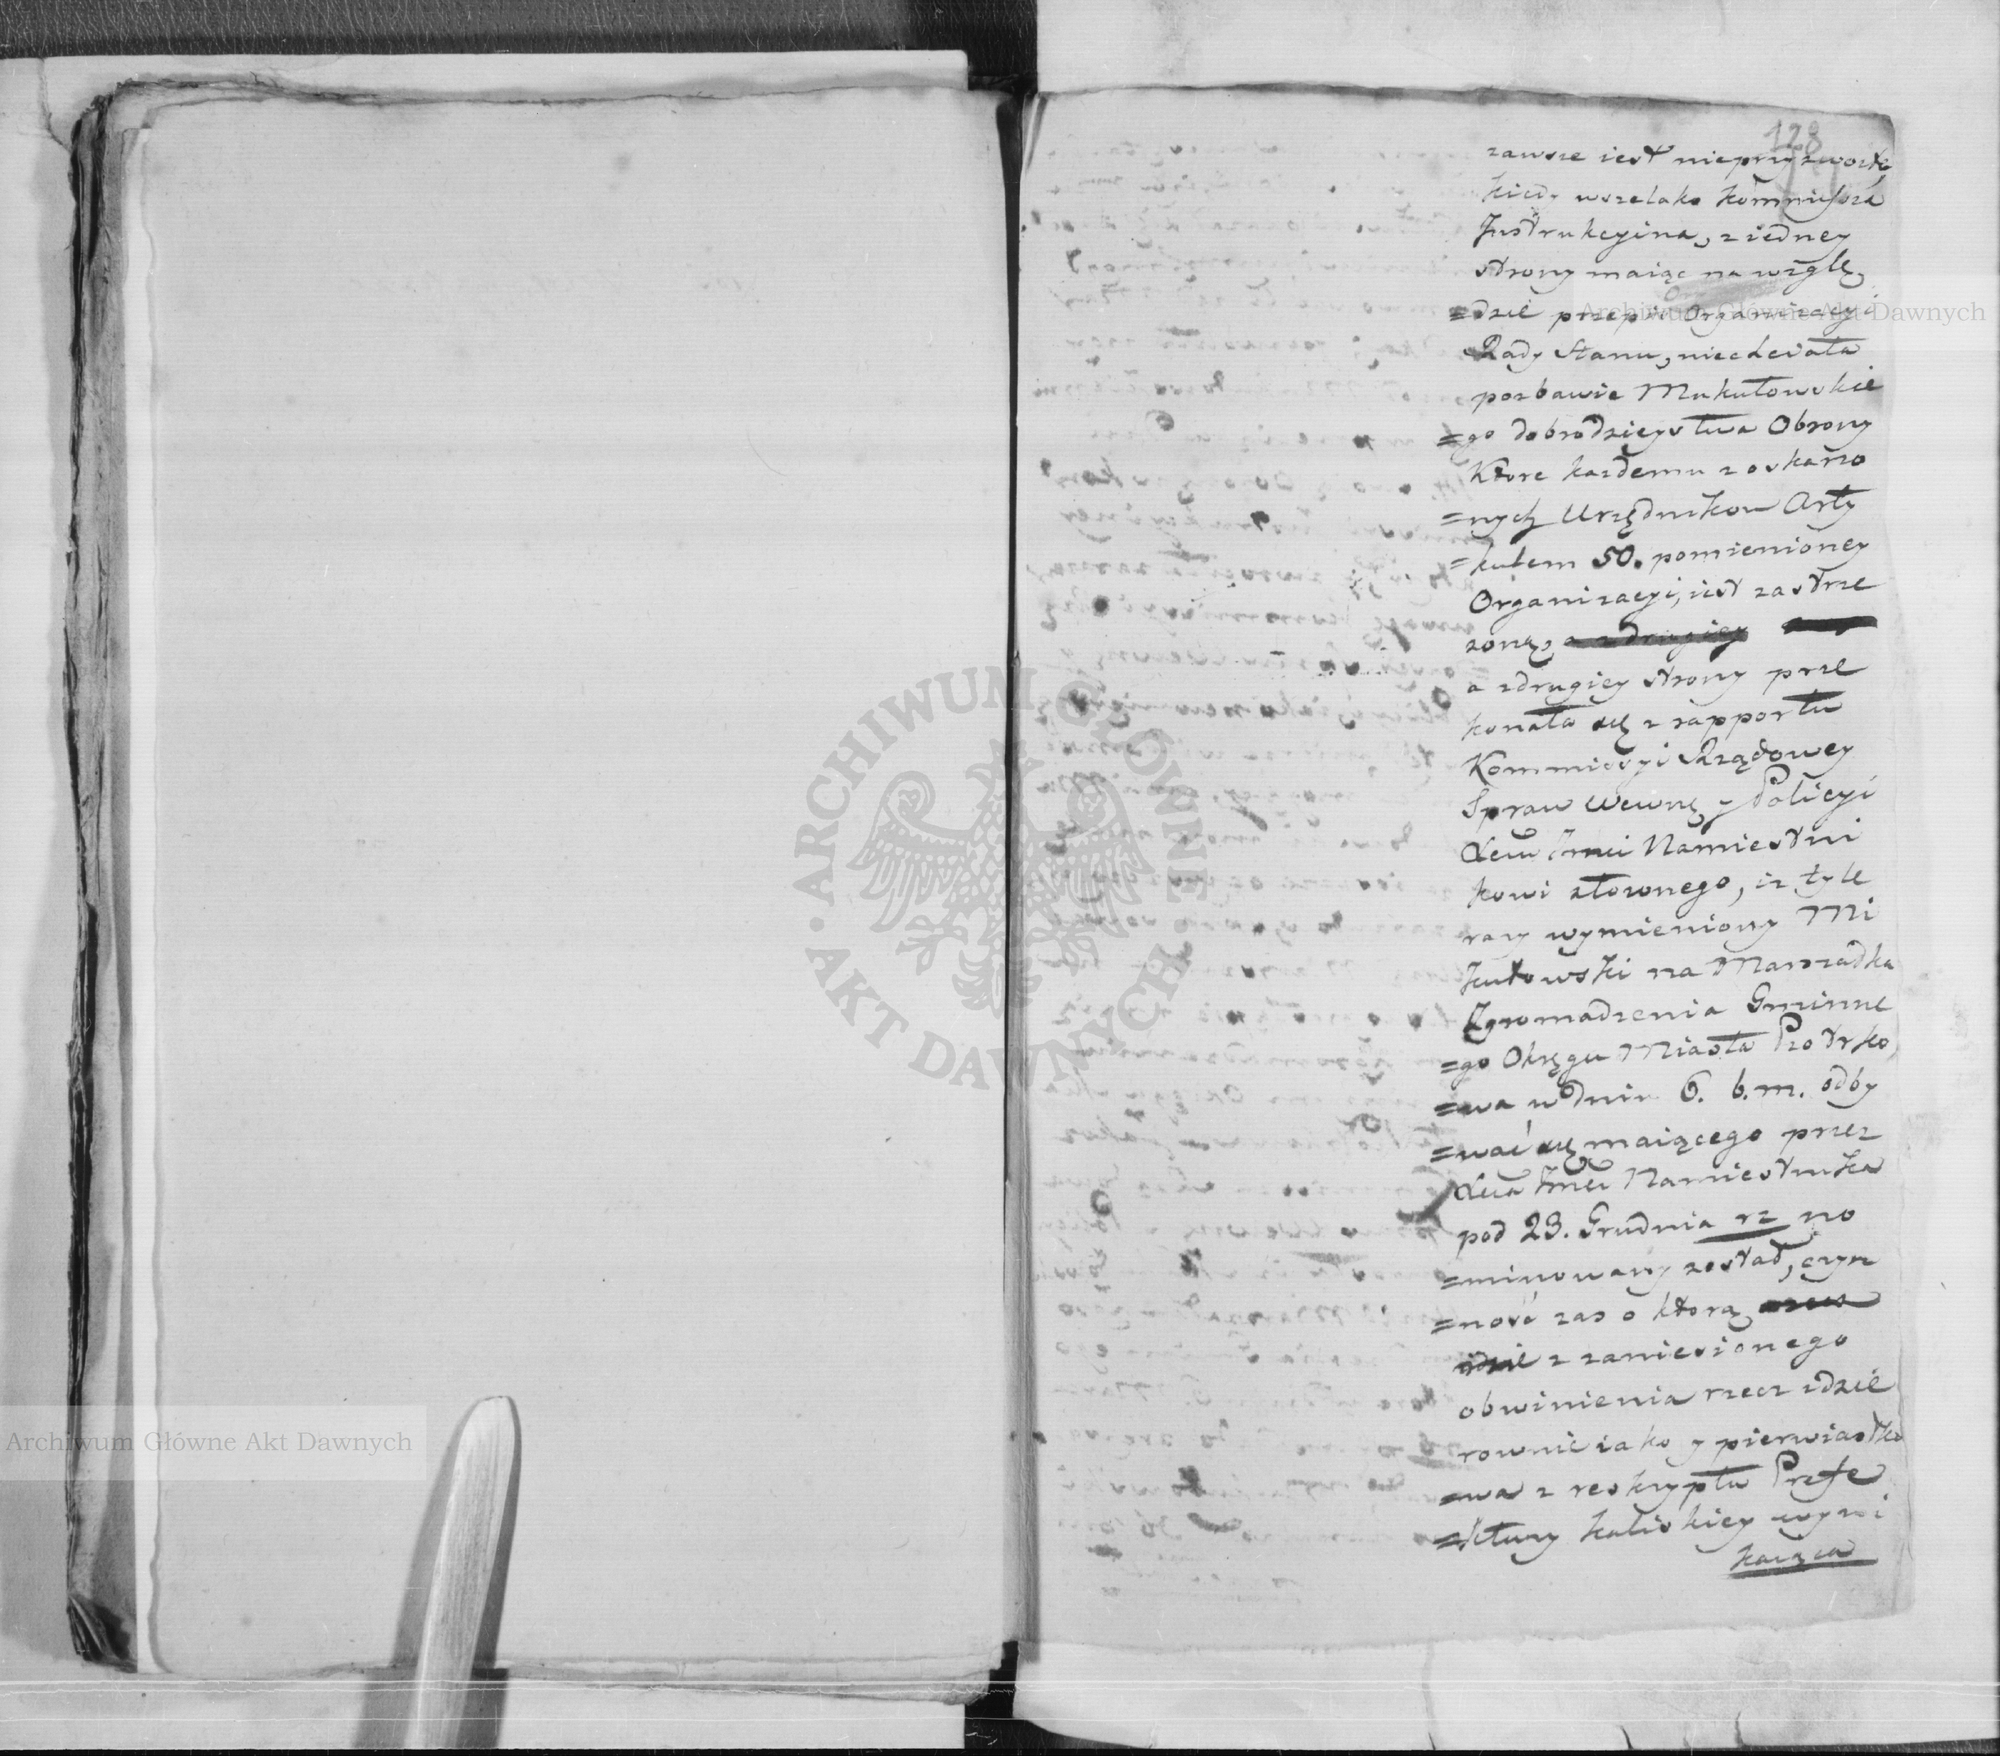 128
zawsze iest nieprzyzwoite
kiedy wszelako Kommissya
Instrukcyina, z iedney
strony maiąc na wzglę
=dzie przepis Organizacyi
Rady Stanu, niechciała
pozbawić Mikułowskie
=go dobrodzieystwa Obrony
Które każdemu z oskarżo
=nych Urzędnikow Arty
=kułem 50. pomienioney
Organizacyi, iest zastrze
zonę, a z drugiey
a zdrugiey strony prze
konała się z rapportu
Kommissyi Rządowey
Spraw Wewnę y Policyi
Xciu Jmci Namiestni
kowi złożonego, iż tyle
razy wymieniony Mi
kułowski na Marszałka
Zgromadzenia Gminne
=go Okręgu Miasta Piotrko
=wa w dniu 6. b.m. odby
=wać się maiącego przez
Xcia Jmci Namiestnika
pod 23. Grudnia rz no
=minowany został, czyn
=ność zas o którą
idzie z zaniesionego
obwinienia rzecz idzie
rownie iako y pierwiastko
=wa z reskryptu Prefe
=ktury Kaliskiey wyni
kaiąca
Archiwum Główne Akt Dawnych
Archiwum Główne Akt Dawnych
ARCHIWUM GŁÓWNE AKT DAWNYCH